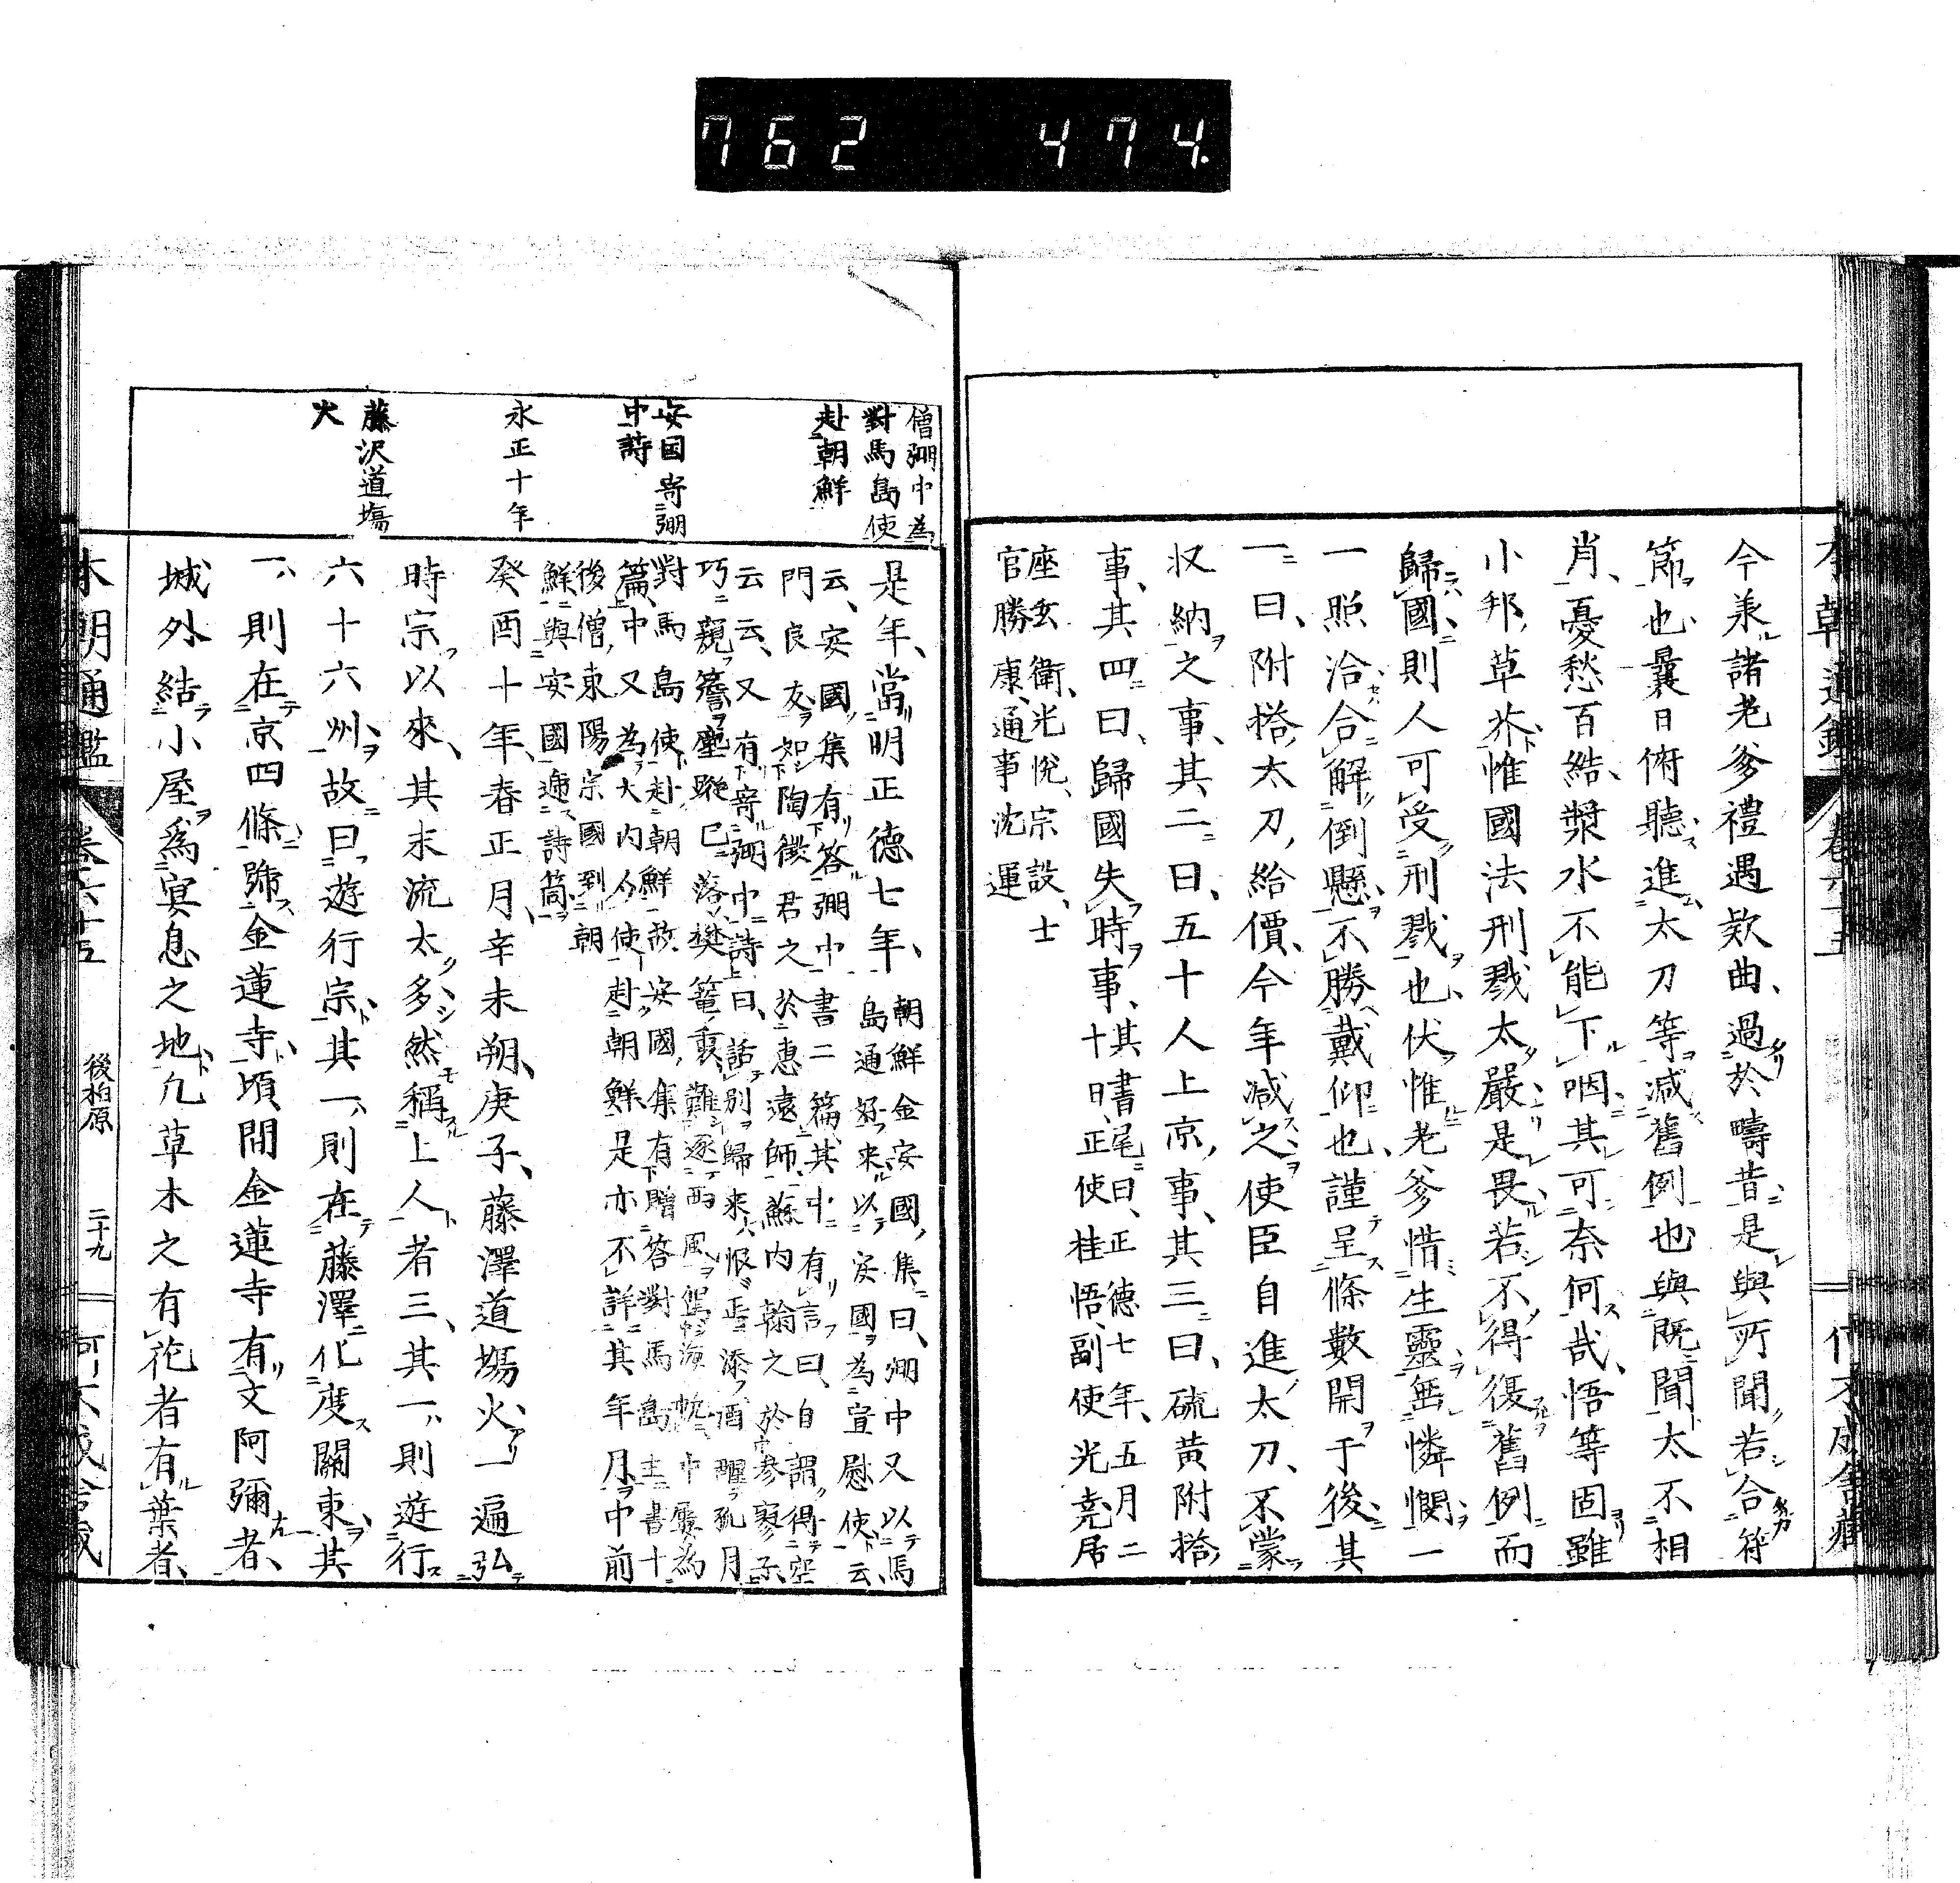 762 474.
今承諸老爹禮遇欵曲、過於疇昔是與所聞若合符
節也、曩日俯聽進太刀等减舊例也與既聞太不相
肖、憂愁百結、漿水不能下咽其可奈何哉、悟等固雖
小邦、草芥惟國法刑戮太嚴是畏若不得復舊例而
歸國則人可受刑戮也、伏惟老爹惜生靈無憐憫一
一照洽合解倒懸不勝戴仰也、謹呈條數開于後其
一曰、附搭太刀、給價、今年减之使臣自進太刀、不蒙
収納之事、其二曰、五十人上京、事、其三曰、硫黄附搭、
事、其四曰、歸國失時事、其書尾曰、正德七年、五月二
十日、正使桂悟、副使光堯居
座玄衛、光悅、宗設、士
官勝康、通事沈運
僧弸中為
對馬島使
赴朝鮮
安国寄弸
中詩
永正十年
藤沢道場
火
是年、當明正德七年、朝鮮金安國、集曰、弸中又以馬
島通好来以安國為宣慰使云、
云、安國集有答弸中書二篇、其中有言曰、自謂得空
門良友如陶徵君之於惠遠師、蘇内翰之於參寥子、
云云、又有寄弸中詩曰、話別歸来恨
巧覘簷塵蹤已落樊篭裏、難逐
對馬島使赴朝鮮故安國集有贈答對馬島主書十
篇、中又為大内今使赴朝鮮是亦不詳其年月中前
後僧、東陽宗國到朝
鮮與安國逓詩筒
癸酉十年、春正月、辛未朔、庚子、藤澤道塲火、一遍弘
時宗以來、其末流太多然稱上人者三、其一則遊行
六十六州故曰遊行宗其一則在藤澤化度關東其
一則在京四條號金蓮寺頃間金蓮寺有文阿彌者、
城外結小屋為宴息之地凡草木之有花者有葉者
本朝通鑑 卷六十五 後柏原 二十九